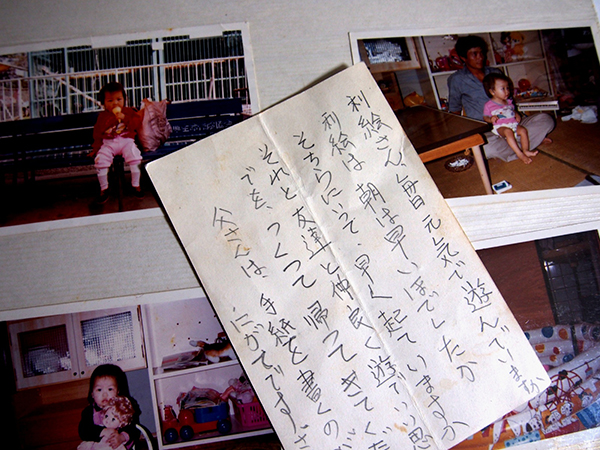 利絵さん、毎 元気で遊んでいますか
利絵は 朝は早いほでしたか
そちらにいって、早く起ていますか
それと友達と仲良く遊で 思
でを、つくって 帰ってきてくだ
父さんは、手紙を書くのが
にがてです。さ